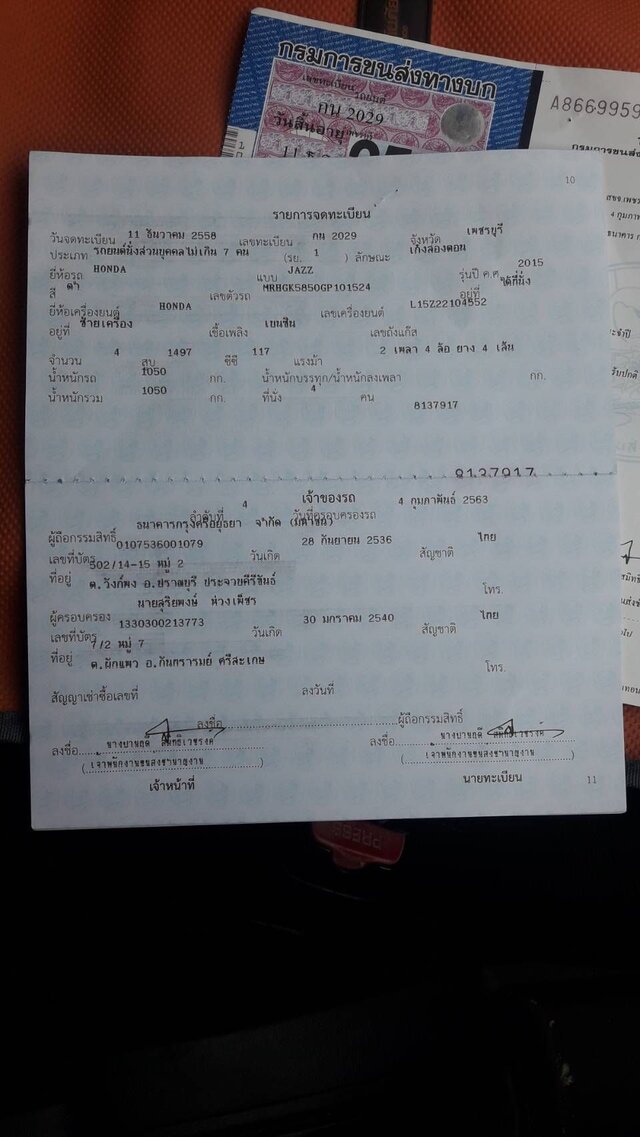 กรมการขนส่งทางบก
เลขทะเบียน รถยนต์
กน 2029
วันสิ้นอายุ
A8669959
กรมการขนส่ง
10
รายการจดทะเบียน
วันจดทะเบียน 11 ธันวาคม 2558 เลขทะเบียน กน 2029 จังหวัด เพชรบุรี
ประเภท รถยนต์นั่งส่วนบุคคลไม่เกิน 7 คน (รย. 1 ) ลักษณะ เก๋งสองตอน
ยี่ห้อรถ HONDA แบบ JAZZ รุ่นปี ค.ศ. 2015
สี ดำ เลขตัวรถ MRHGK5850GP101524 อยู่ที่ ใต้ที่นั่ง
ยี่ห้อเครื่องยนต์ HONDA เลขเครื่องยนต์ L15Z22104552
อยู่ที่ ซ้ายเครื่อง เชื้อเพลิง เบนซิน เลขถังแก๊ส
จำนวน 4 สูบ 1497 ซีซี 117 แรงม้า 2 เพลา 4 ล้อ ยาง 4 เส้น
น้ำหนักรถ 1050 กก. น้ำหนักบรรทุก/น้ำหนักลงเพลา กก.
น้ำหนักรวม 1050 กก. ที่นั่ง 4 คน
8137917
8137917
เจ้าของรถ
ลำดับที่ 4 วันที่ครอบครองรถ 4 กุมภาพันธ์ 2563
ผู้ถือกรรมสิทธิ์ ธนาคารกรุงศรีอยุธยา จำกัด (มหาชน)
เลขที่บัตร 0107536001079 วันเกิด 28 กันยายน 2536 สัญชาติ ไทย
ที่อยู่ 302/14-15 หมู่ 2
ต.วังก์พง อ.ปราณบุรี ประจวบคีรีขันธ์ โทร.
ผู้ครอบครอง นายสุริยพงษ์ ห่วงเพ็ชร
เลขที่บัตร 1330300213773 วันเกิด 30 มกราคม 2540 สัญชาติ ไทย
ที่อยู่ 7/2 หมู่ 7
ต.ผักแพว อ.กันทรารมย์ ศรีสะเกษ โทร.
สัญญาเช่าซื้อเลขที่ ลงวันที่
ลงชื่อ ผู้ถือกรรมสิทธิ์
ลงชื่อ ลงชื่อ
(เจ้าพนักงานขนส่งชำนาญงาน) (เจ้าพนักงานขนส่งชำนาญงาน)
เจ้าหน้าที่ นายทะเบียน
11